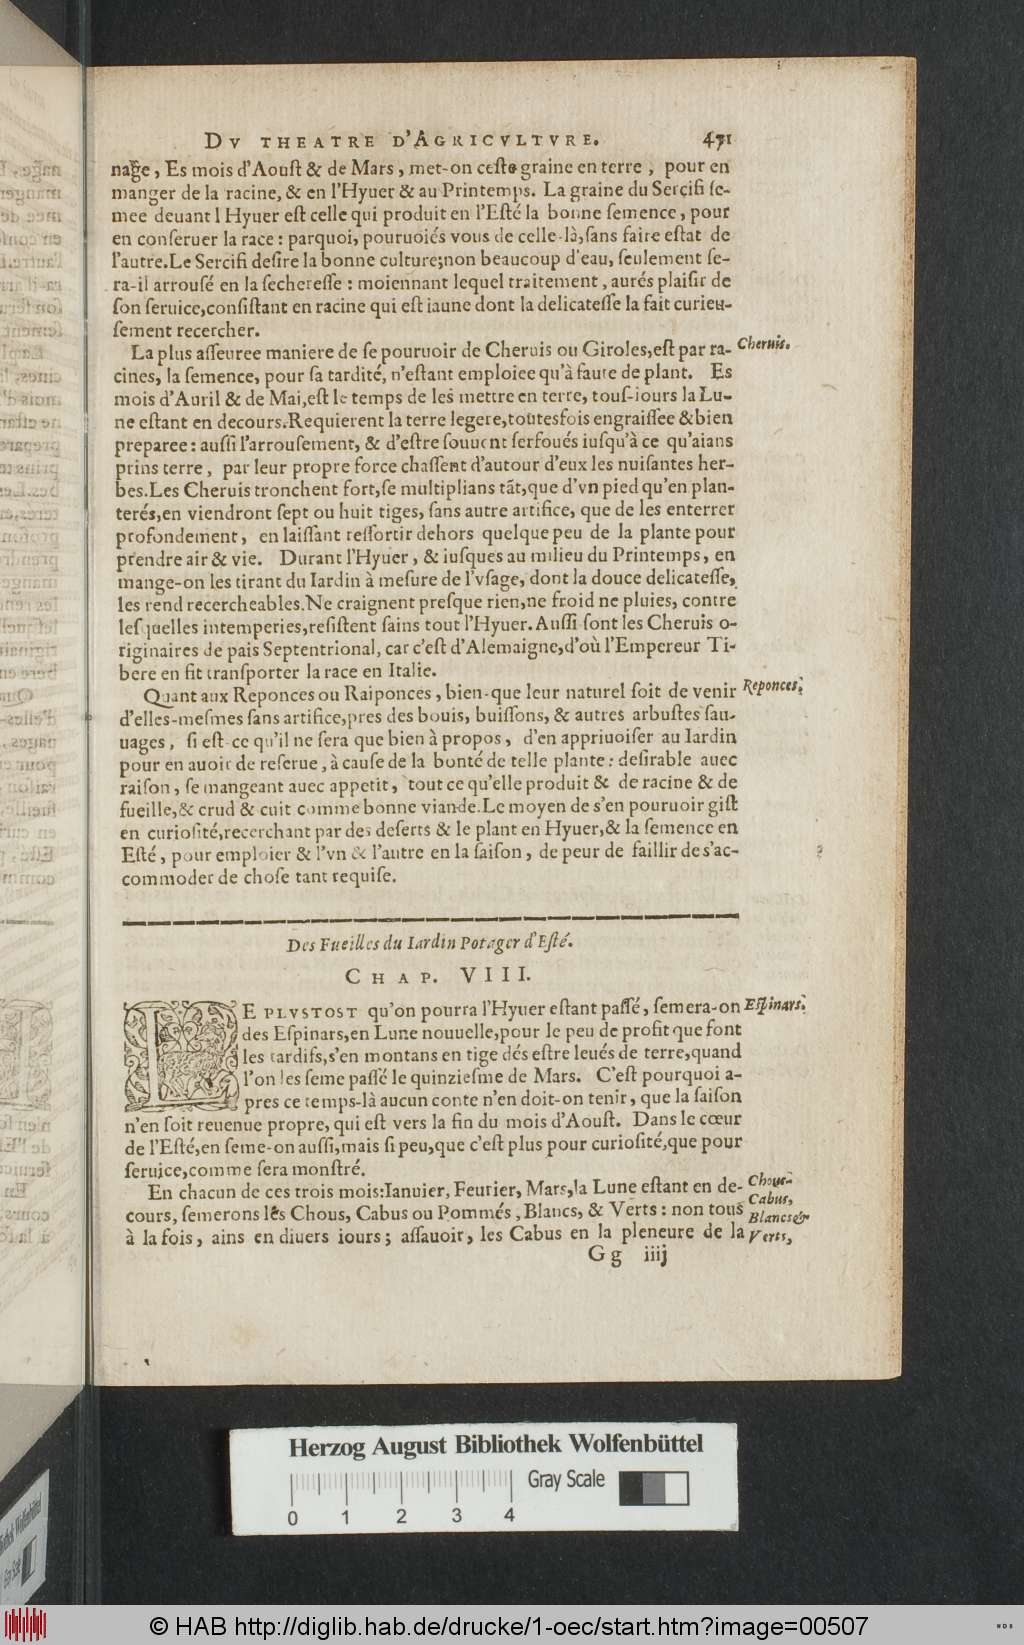 Dv theatre d'Agricvltvre. 471
nage, Es mois d'Aouſt & de Mars, met-on ceſte graine en terre, pour en
manger de la racine, & en l'Hyuer & au Printemps. La graine du Sercifi ſe-
mee deuant l Hyuer eſt celle qui produit en l'Eſté la bonne ſemence, pour
en conſeruer la race: parquoi, pouruoiés vous de celle-là, ſans faire eſtat de
l'autre. Le Sercifi deſire la bonne culture; non beaucoup d'eau, ſeulement ſe-
ra-il arrouſé en la ſechereſſe: moiennant lequel traitement, aurés plaiſir de
ſon ſeruice, conſiſtant en racine qui eſt iaune dont la delicateſſe la fait curieu-
ſement recercher.
La plus aſſeuree maniere de ſe pouruoir de Cheruis ou Giroles, eſt par ra- Cheruis.
cines, la ſemence, pour ſa tardité, n'eſtant emploiee qu'à faute de plant. Es
mois d'Auril & de Mai, eſt le temps de les mettre en terre, touſ-iours la Lu-
ne eſtant en decours. Requierent la terre legere, toutesfois engraiſſee & bien
preparee: auſſi l'arrouſement, & d'eſtre ſouuent ſerfoués iuſqu'à ce qu'aians
prins terre, par leur propre force chaſſent d'autour d'eux les nuiſantes her-
bes. Les Cheruis tronchent fort, ſe multiplians tãt, que d'vn pied qu'en plan-
terés, en viendront ſept ou huit tiges, ſans autre artifice, que de les enterrer
profondement, en laiſſant reſſortir dehors quelque peu de la plante pour
prendre air & vie. Durant l'Hyuer, & iuſques au milieu du Printemps, en
mange-on les tirant du Iardin à meſure de l'vſage, dont la douce delicateſſe,
les rend recercheables. Ne craignent preſque rien, ne froid ne pluies, contre
leſquelles intemperies, reſiſtent ſains tout l'Hyuer. Auſſi ſont les Cheruis o-
riginaires de païs Septentrional, car c'eſt d'Alemaigne, d'où l'Empereur Ti-
bere en fit tranſporter la race en Italie.
Quant aux Reponces ou Raiponces, bien-que leur naturel ſoit de venir Reponces.
d'elles-meſmes ſans artifice, pres des bouis, buiſſons, & autres arbuſtes ſau-
uages, ſi eſt-ce qu'il ne ſera que bien à propos, d'en appriuoiſer au Iardin
pour en auoir de reſerue, à cauſe de la bonté de telle plante: deſirable auec
raiſon, ſe mangeant auec appetit, tout ce qu'elle produit & de racine & de
fueille, & crud & cuit comme bonne viande. Le moyen de s'en pouruoir giſt
en curioſité, recerchant par des deſerts & le plant en Hyuer, & la ſemence en
Eſté, pour emploier & l'vn & l'autre en la ſaiſon, de peur de faillir de s'ac-
commoder de choſe tant requiſe.
Des Fueilles du Iardin Potager d'Eſté.
Chap. VIII.
LE plvstost qu'on pourra l'Hyuer eſtant paſſé, ſemera-on Eſpinars.
des Eſpinars, en Lune nouuelle, pour le peu de profit que font
les tardifs, s'en montans en tige dés eſtre leués de terre, quand
l'on les ſeme paſſé le quinzieſme de Mars. C'eſt pourquoi a-
pres ce temps-là aucun conte n'en doit-on tenir, que la ſaiſon
n'en ſoit reuenue propre, qui eſt vers la fin du mois d'Aouſt. Dans le cœur
de l'Eſté, en ſeme-on auſſi, mais ſi peu, que c'eſt plus pour curioſité, que pour
ſeruice, comme ſera monſtré.
En chacun de ces trois mois: Ianuier, Feurier, Mars, la Lune eſtant en de- Choux-
cours, ſemerons les Chous, Cabus ou Pommés, Blancs, & Verts: non tous Cabus,
Blancs &
à la fois, ains en diuers iours; aſſauoir, les Cabus en la pleneure de la Verts,
Gg iiij
Herzog August Bibliothek Wolfenbüttel
Gray Scale
0 1 2 3 4
© HAB http://diglib.hab.de/drucke/1-oec/start.htm?image=00507